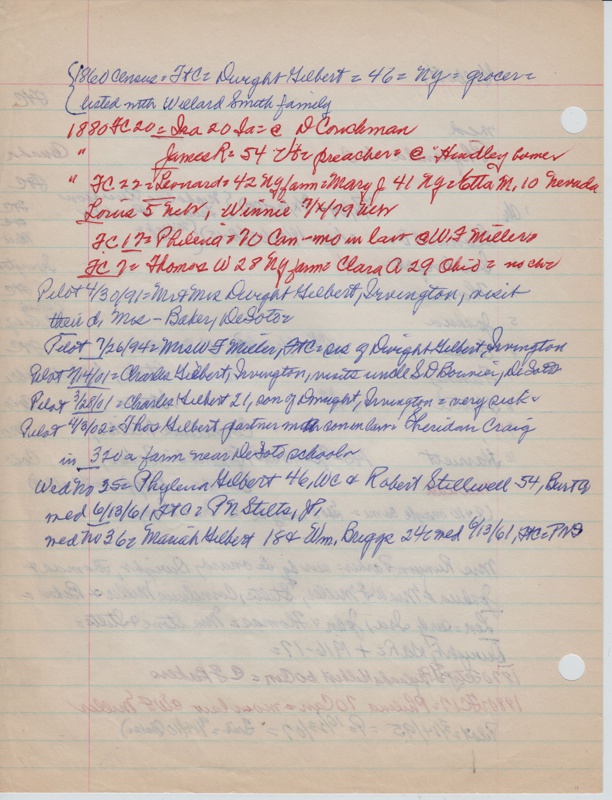 1860 Census = FtC = Dwight Gilbert = 46 = Ny = grocer =
listed with Willard Smith family
1880 FC 20 = Ira 20 Ia = @ D Couchman
" James R = 54 Vt = preacher = @ Hindley
" FC 22 = Leonard = 42 Ny farm = Mary J 41 Ny = Etta M, 10 Nevada
Louis 5 Nebr, Winnie 7/4/79 Nebr
FC 17 = Philena = 70 Can - mo in law @ W F Millers
FC 7 = Thomas W 28 Ny farm = Clara A 29 Ohio = no chr
Pilot 4/30/91 = Mr & Mrs Dwight Gilbert, Irvington, visit
their d, Mrs - Baker, DeSoto =
Pilot 7/26/94 = Mrs W F Miller, FtC = sis of Dwight Gilbert Irvington
Pilot 7/14/01 = Charles Gilbert, Irvington, visits uncle S D DeSoto
Pilot 3/28/01 = Charles Gilbert 21, son of Dwight, Irvington = very sick =
Pilot 4/3/02 = Thos Gilbert partner with son in law = Sheridan Craig
in 320 a farm near DeSoto school
Wed No 35 = Phylena Gilbert 46, WC & Robert Stillwell - 54, Burt Co
med 6/13/61, FtC = P N Stilts, JP,
med No 36 = Mariah Gilbert 18 & Wm. Briggs 24 = med 6/13/61, FtC = PNS